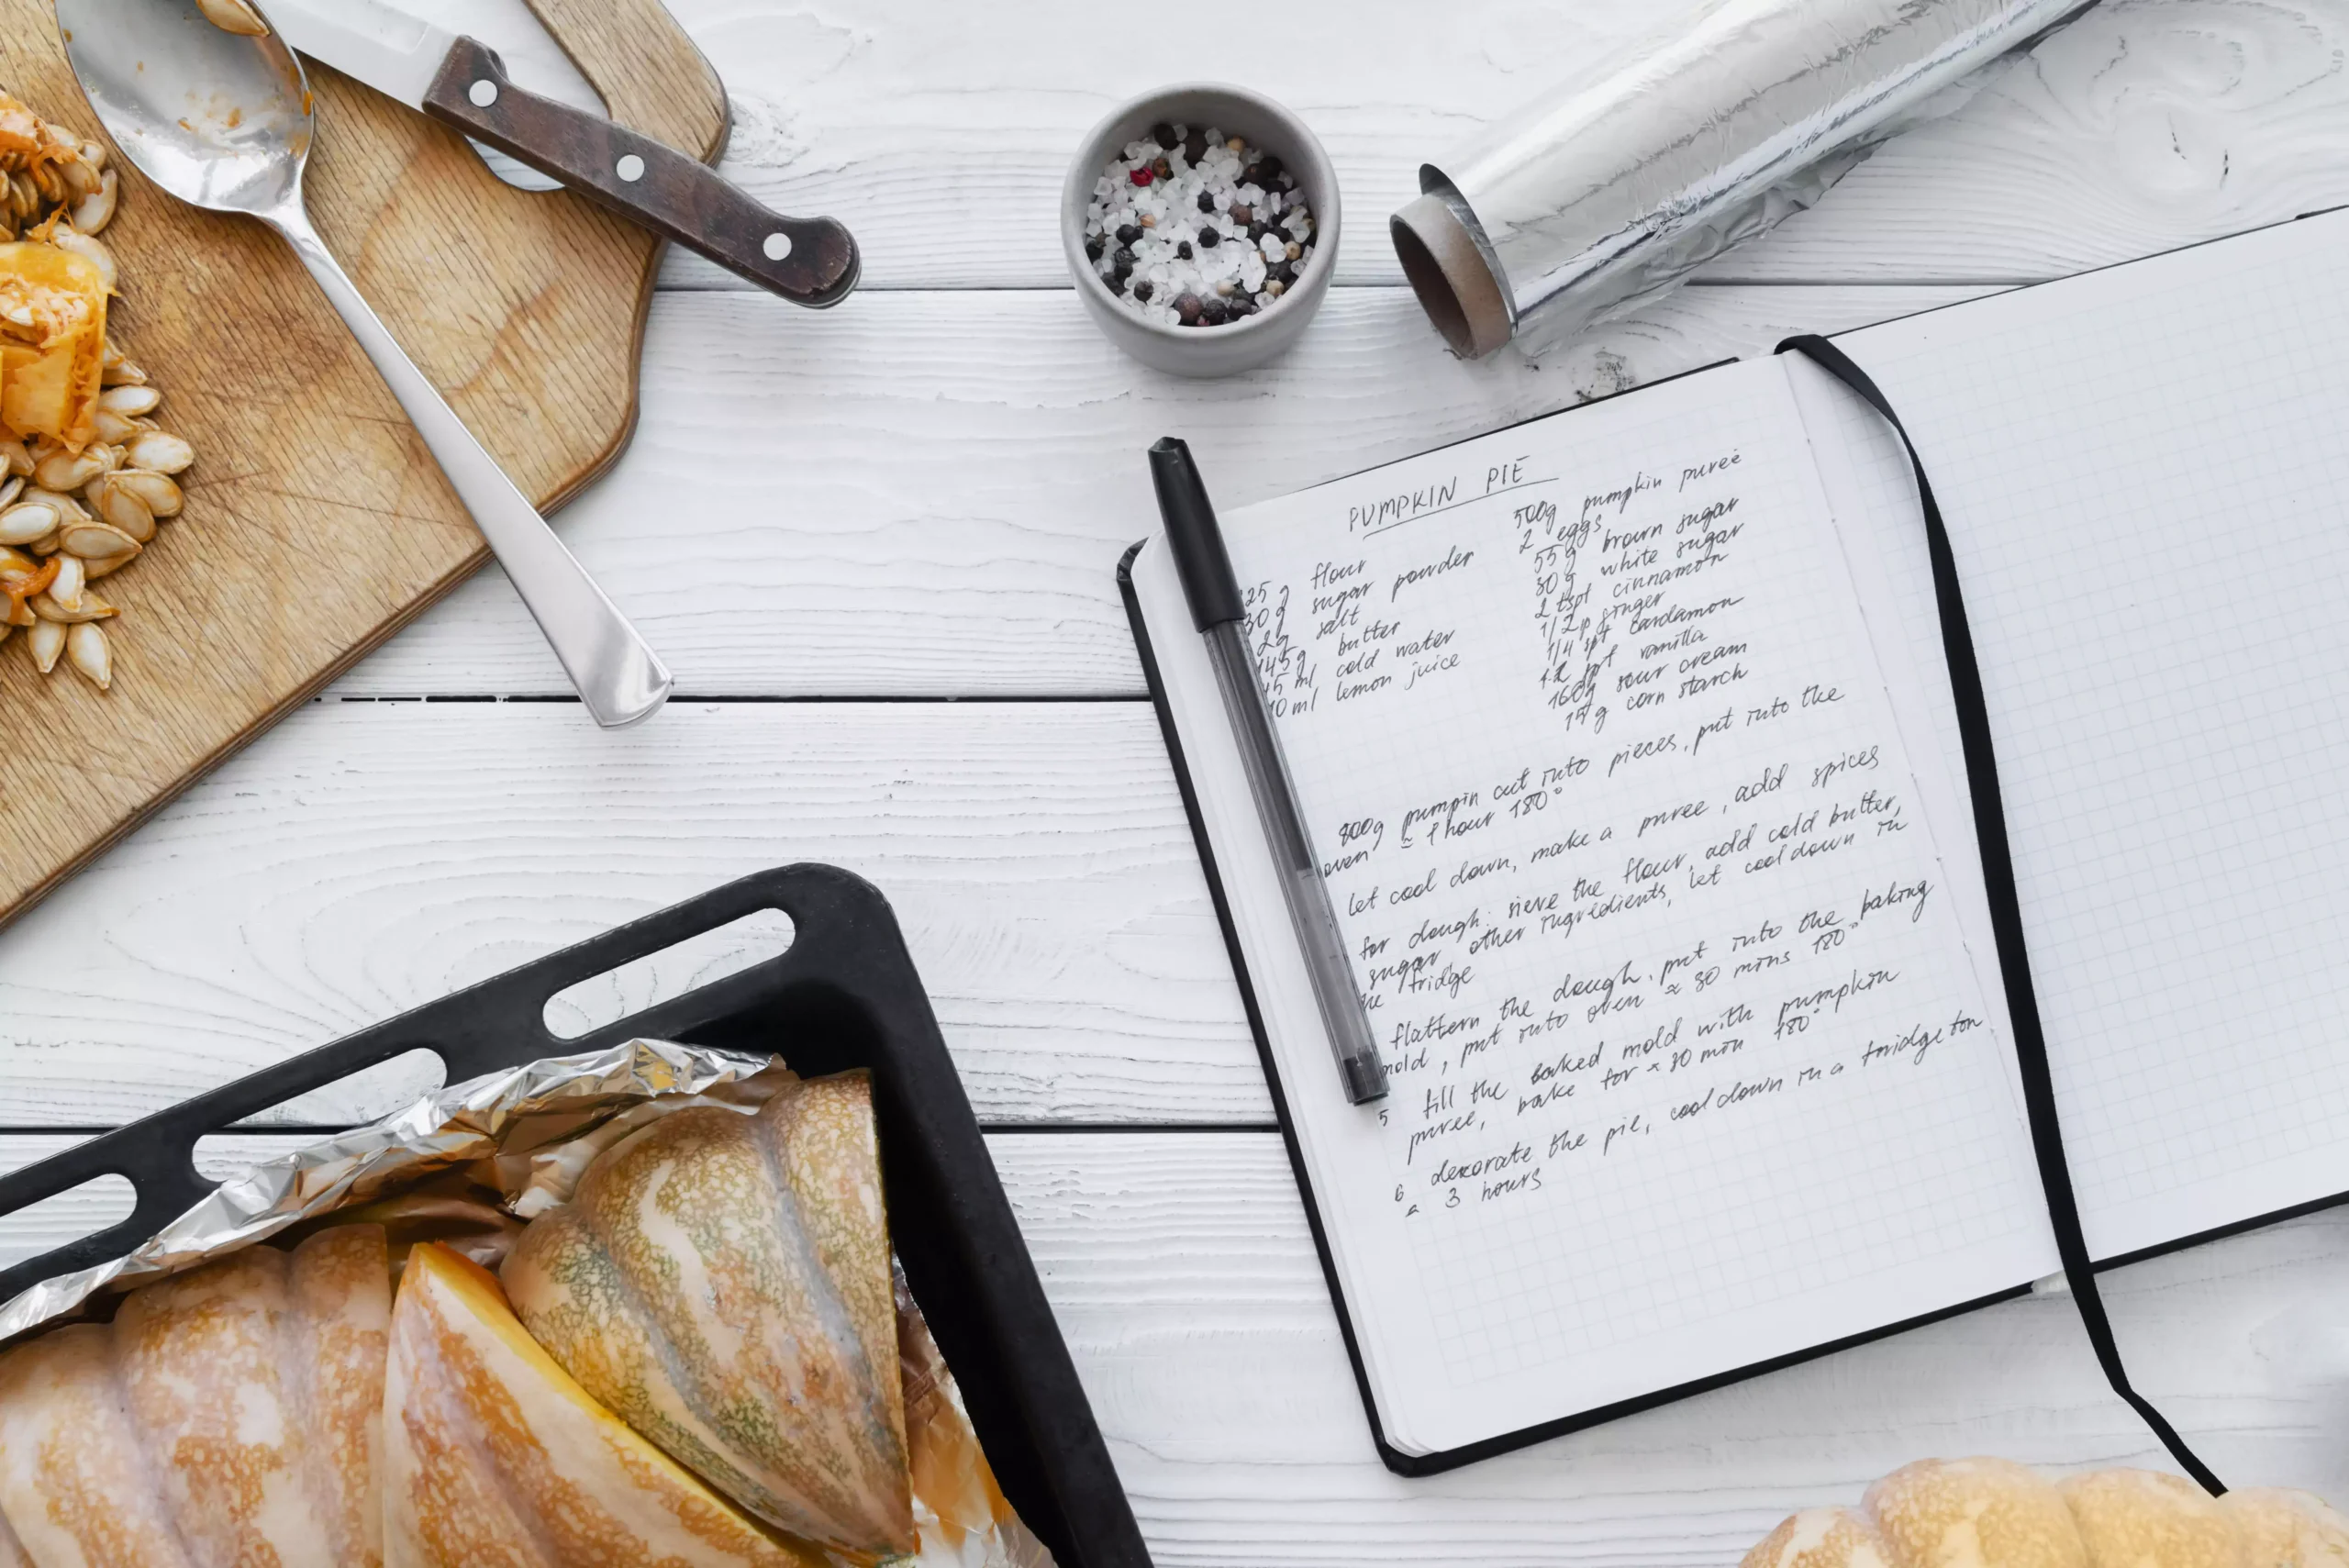 PUMPKIN PIE
25 g flour
30 g sugar powder
2g salt
145 g butter
15 ml cold water
10 ml lemon juice
500g pumpkin pureé
2 eggs
55 g brown sugar
30 g white sugar
2 tspt cinnamon
1/2 p ginger
1/4 spt cardamon
vanilla
160g sour cream
15 g corn starch
800g pumpin cut into pieces, put into the
oven ≈ 1 hour 180°
let cool down, make a puree, add spices
for dough: sieve the flour, add cold butter,
sugar, other ingredients, let cool down in
he fridge
flattern the dough, put into the baking
mold, put into oven ≈ 30 mins 180°
5 fill the baked mold with pumpkin
puree, bake for ≈ 30 min 180°
6 decorate the pie, cool down in a fridge for
≈ 3 hours